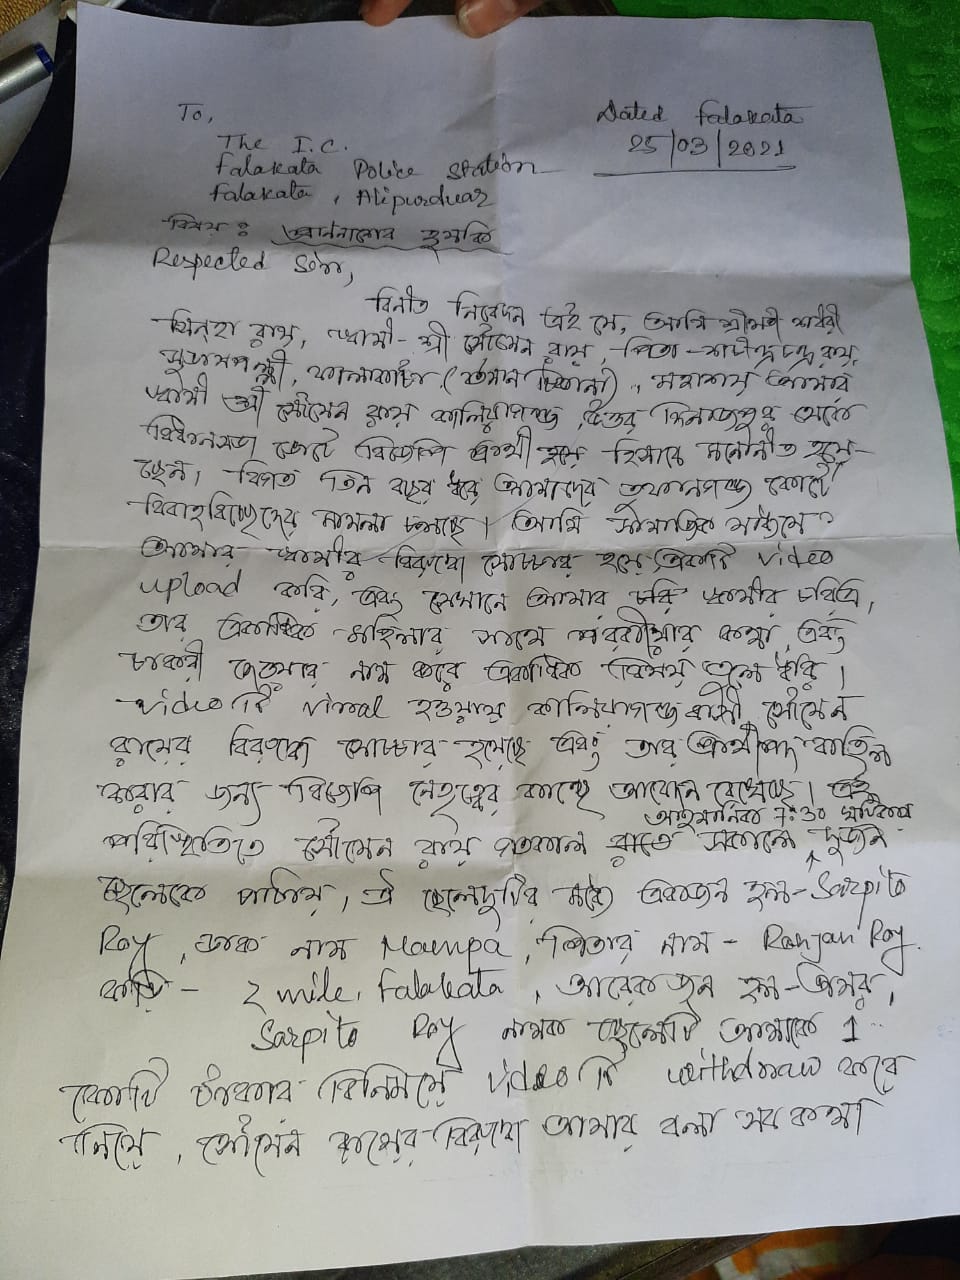 To,
Dated Falakata
25/03/2021
The I.C.
Falakata Police Station
Falakata, Alipurduar
বিষয় : প্রাণনাশের হুমকি
Respected Sir,
বিনীত নিবেদন এই যে, আমি শ্রীমতী শর্বরী
সিনহা রায়, স্বামী - শ্রী সৌমেন রায়, পিতা - শচীন্দ্রচন্দ্র রায়,
সুভাসপল্লী, ফালাকাটা (বর্তমান ঠিকানা), মহাশয় আমার
স্বামী শ্রী সৌমেন রায় কালিয়াগঞ্জে, উত্তর দিনাজপুর থেকে
বিধানসভা ভোটে বিজেপি প্রার্থী হিসাবে মনোনীত হয়ে-
ছেন। বিগত তিন বছর ধরে আমাদের তুফানগঞ্জ কোর্টে
বিবাহবিচ্ছেদের মামলা চলছে। আমি সামাজিক মাধ্যমে
আমার স্বামীর বিরুদ্ধে সোচ্চার হয়ে একটি video
upload করি, এবং সেখানে আমার স্বামীর চরিত্র,
তার একাধিক মহিলার সাথে পরকীয়ার কথা, এবং
চাকরী দেওয়ার নাম করে একাধিক বিষয় তুলে ধরি।
video টি viral হওয়ায় কালিয়াগঞ্জ বাসী সৌমেন
রায়ের বিরুদ্ধে সোচ্চার হয়েছে এবং তার প্রার্থীপদ বাতিল
করার জন্য বিজেপি নেতৃত্বের কাছে আবেদন রেখেছে। এই
আনুমানিক 7:30 ঘটিকায়
পরিস্থিতিতে সৌমেন রায় গতকাল রাতে সকালে দুজন
ছেলেকে পাঠায়, ঐ ছেলেদুটির মধ্যে একজন হল - Sarpito
Roy, ডাক নাম Mampa, পিতার নাম - Ranjan Roy.
বাড়ি - 2 mile, Falakata, আরেকজন হল - অমর,
Sarpito Roy নামক ছেলেটি আমাকে 1
কোটি টাকার বিনিময়ে video টি withdraw করে
নিয়ে, সৌমেন রায়ের বিরুদ্ধে আমার বলা সব কথা